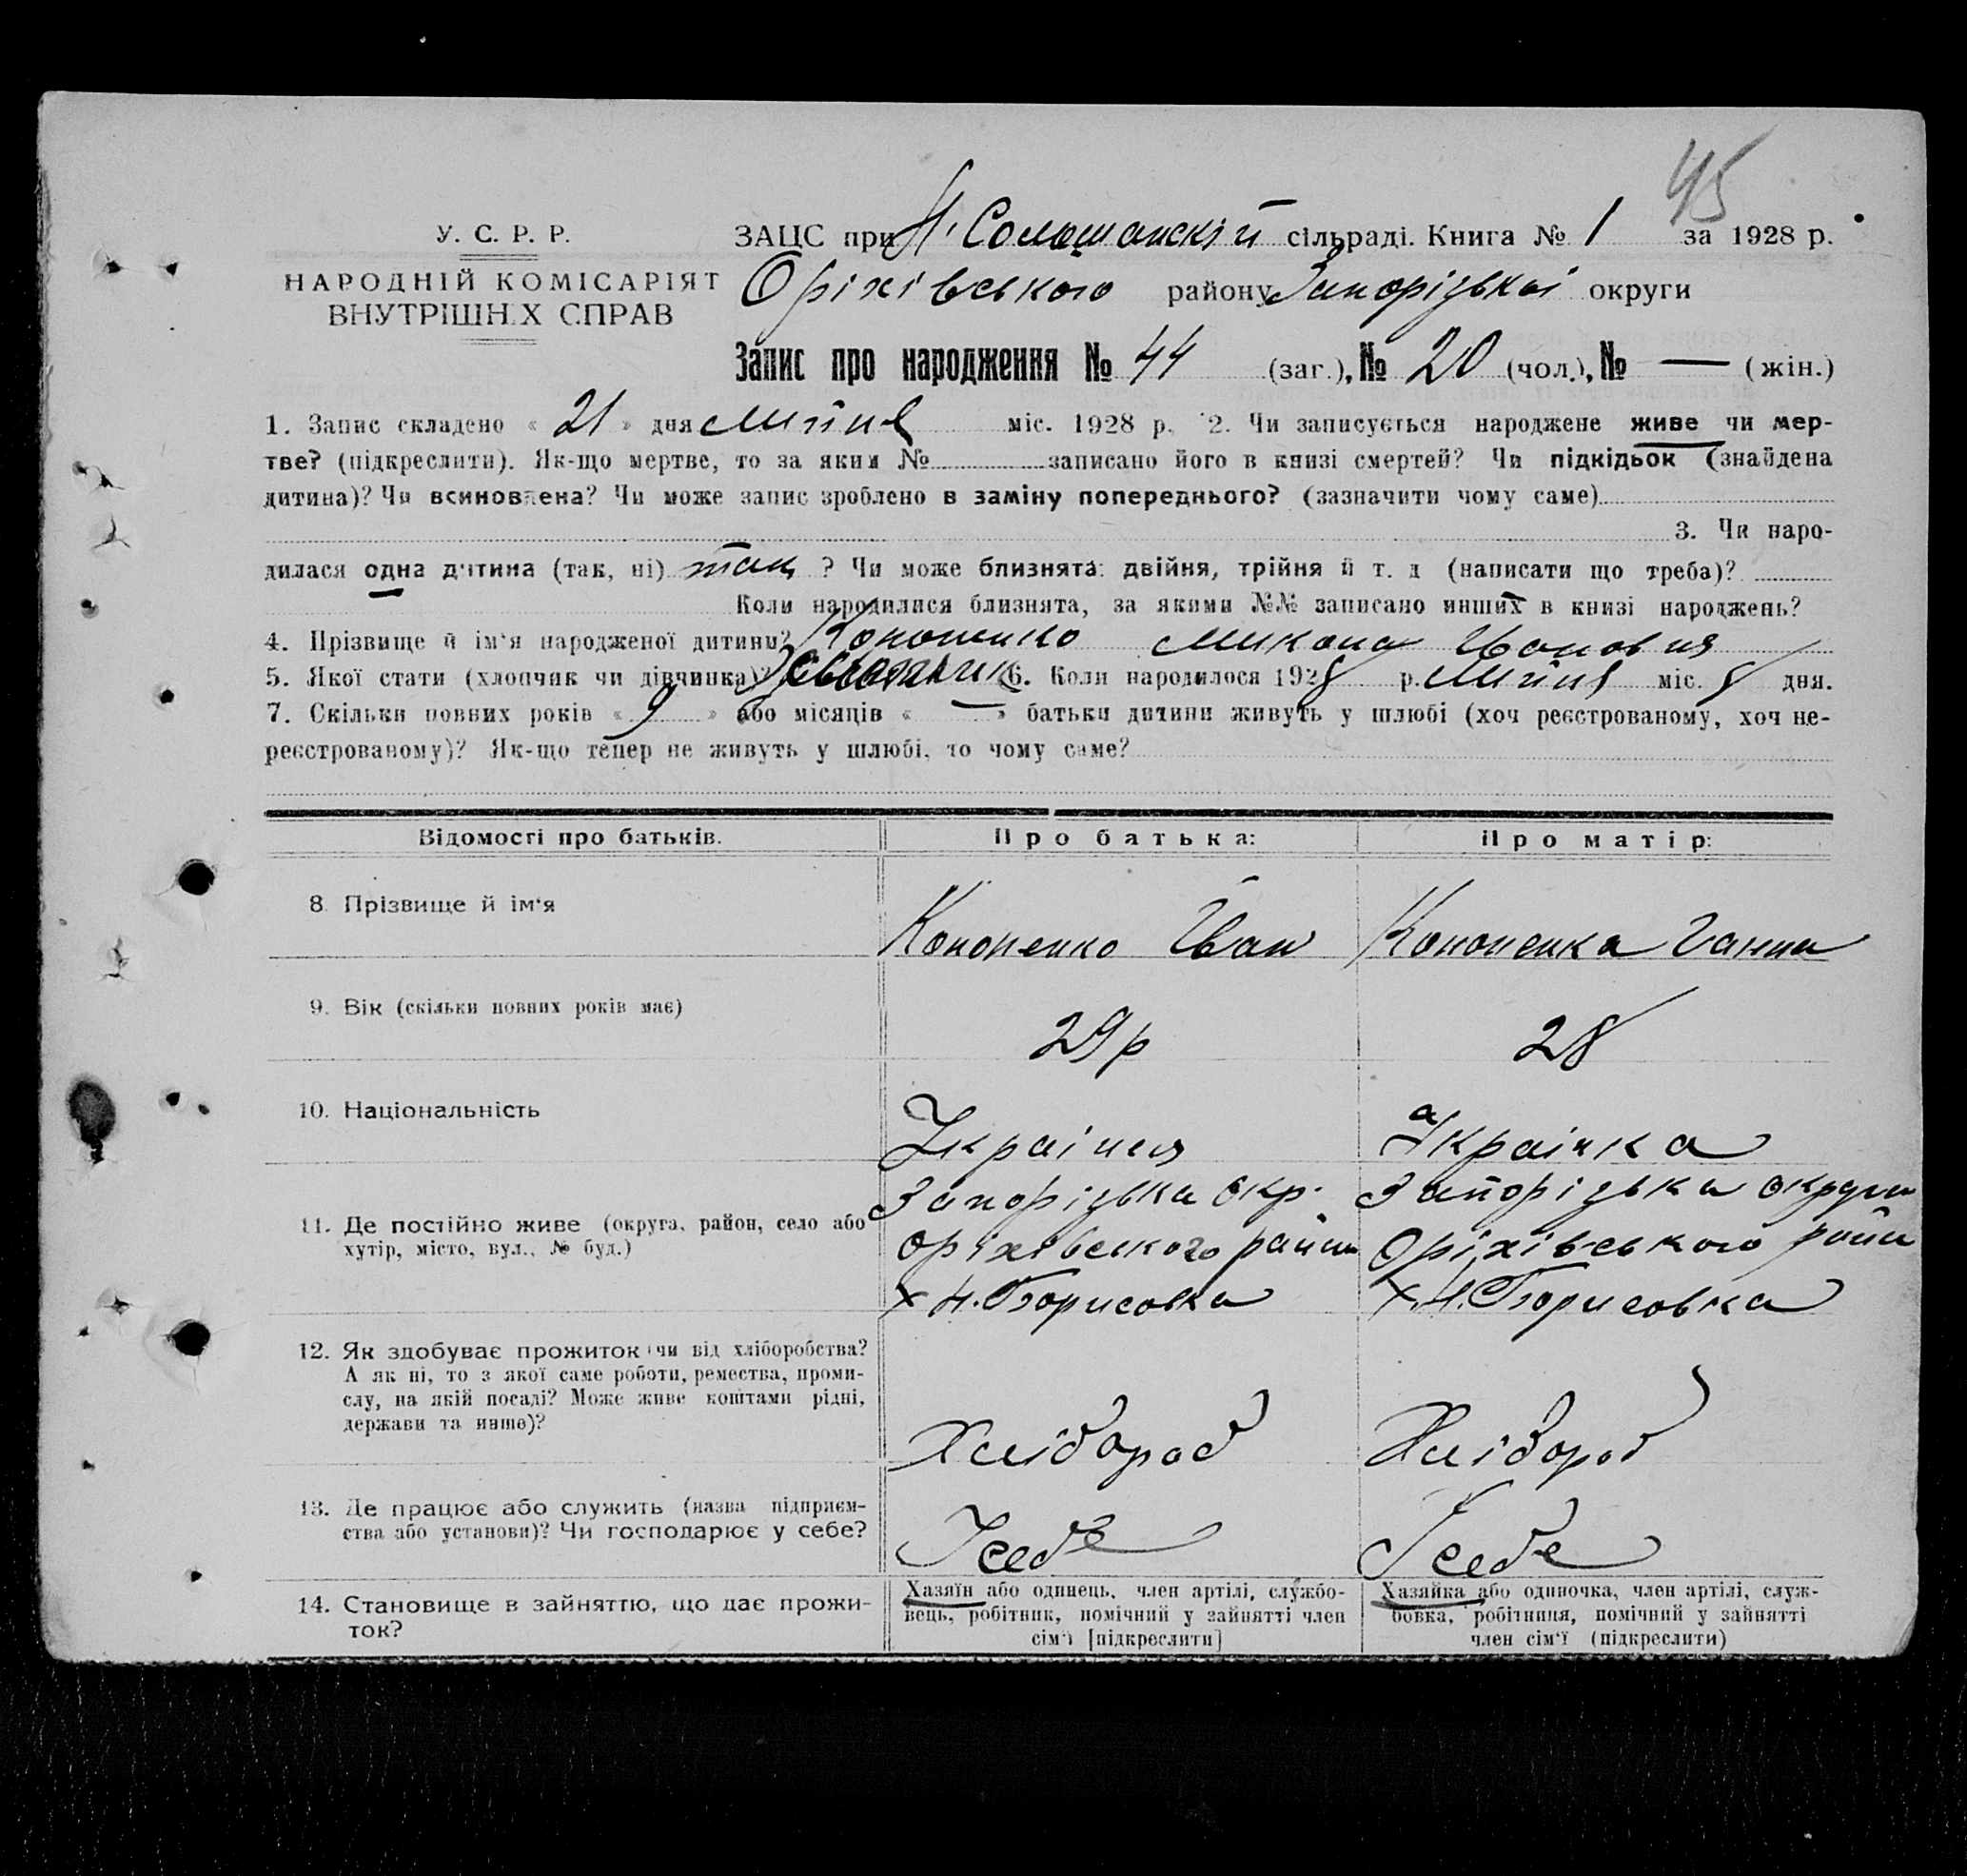 45
У. С. Р. Р.
НАРОДНІЙ КОМІСАРІЯТ
ВНУТРІШНІХ СПРАВ
ЗАЦС при сільраді. Книга № 1 за 1928 р.
Оріхівського району Запорізької округи
Запис про народження № 44 (заг.), № 20 (чол.), № — (жін.)
1. Запис складено « 21 » дня міс. 1928 р. 2. Чи записується народжене живе чи мер-
тве? (підкреслити). Як-що мертве, то за яким № записано його в книзі смертей? Чи підкідьок (знайдена
дитина)? Чи всиновлена? Чи може запис зроблено в заміну попереднього? (зазначити чому саме)
3. Чи наро-
дилася одна дитина (так, ні) так ? Чи може близнята: двійня, трійня й т. д (написати що треба)?
Коли народилися близнята, за якими №№ записано инших в книзі народжень?
4. Прізвище й ім'я народженої дитини? Кононенко Микола Іванович
5. Якої стати (хлопчик чи дівчинка)? 6. Коли народилося 1928 р. міс. 8 дня.
7. Скільки повних років « 9 » або місяців « — » батьки дитини живуть у шлюбі (хоч реєстрованому, хоч не-
реєстрованому)? Як-що тепер не живуть у шлюбі, то чому саме?
Відомості про батьків. Про батька: Про матір:
8. Прізвище й ім'я Кононенко Іван Кононенка Ганна
9. Вік (скільки повних років має) 29 р 28
10. Національність Українец Українка
11. Де постійно живе (округа, район, село або
хутір, місто, вул., № буд.)
Запорізька окр. Запорізька округи
Оріхівського район Оріхівського райн
х Н. Борисовка х. Н. Борисовка
12. Як здобуває прожиток чи від хліборобства?
А як ні, то з якої саме роботи, ремества, проми-
слу, на якій посаді? Може живе коштами рідні,
держави та инше)?
Хлібороб Хлібороб
13. Де працює або служить (назва підприєм-
ства або установи)? Чи господарює у себе?
У себе У себе
14. Становище в зайняттю, що дає прожи-
ток?
Хазяїн або одинець, член артілі, службо-
вець, робітник, помічний у зайнятті член
сім'ї [підкреслити]
Хазяйка або одиночка, член артілі, служ-
бовка, робітниця, помічний у зайнятті
член сім'ї (підкреслити)